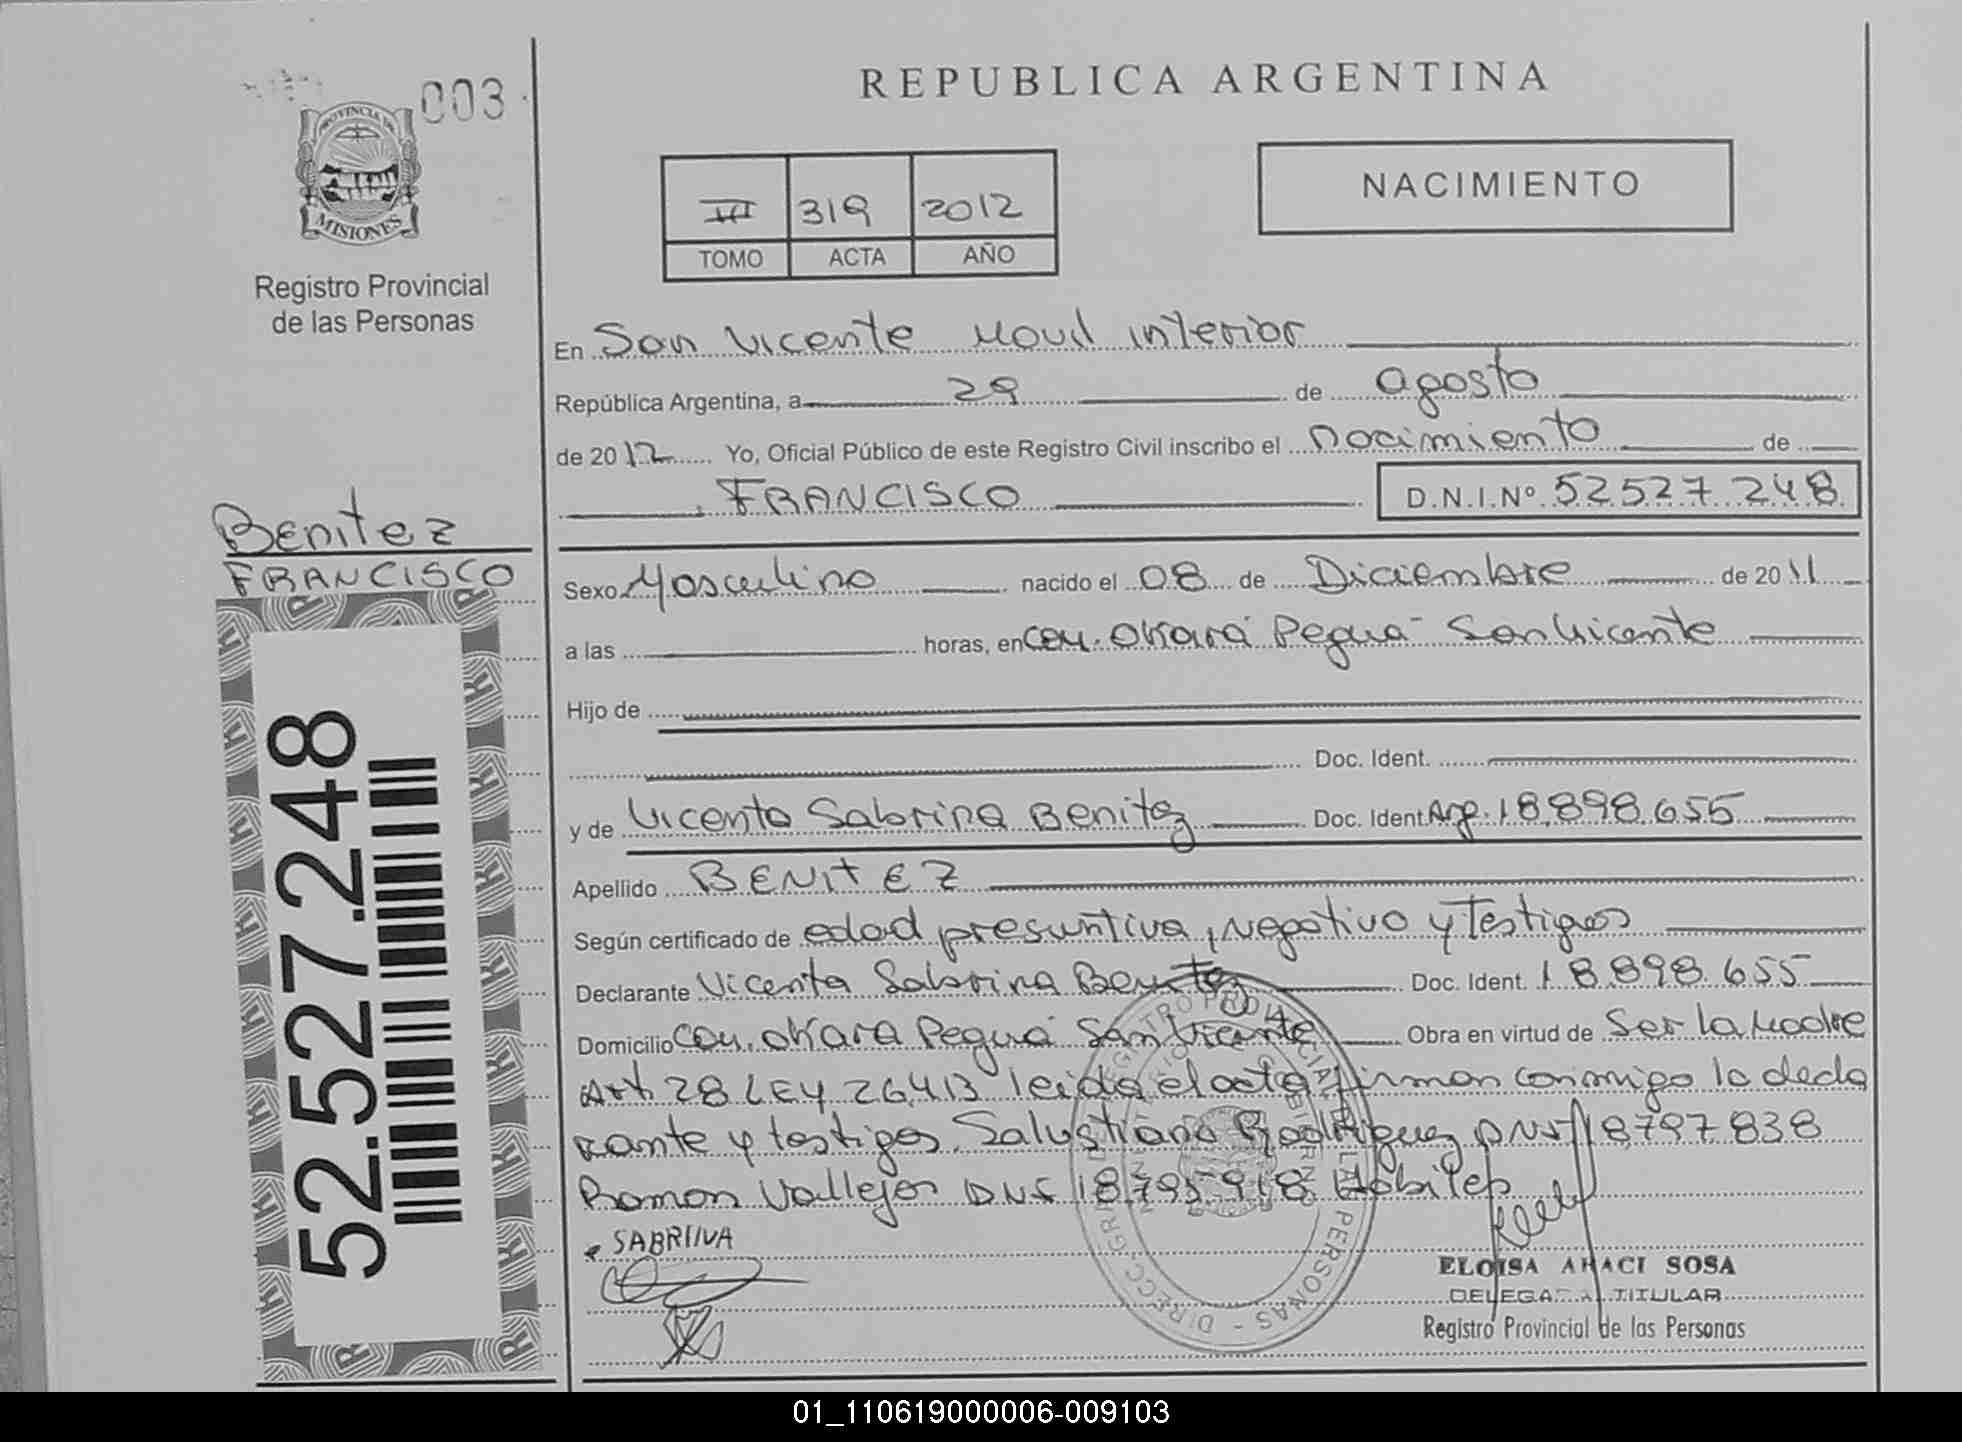 003
PROVINCIA DE
MISIONES
Registro Provincial
de las Personas
REPUBLICA ARGENTINA
NACIMIENTO
III 319 2012
TOMO ACTA AÑO
En San Vicente Movil interior
República Argentina, a 29 de agosto
de 2012 Yo, Oficial Público de este Registro Civil inscribo el Nacimiento de
FRANCISCO D.N.I.Nº 52527.248
Benitez
FRANCISCO
52.527.248
Sexo Masculino nacido el 08 de Diciembre de 2011
a las horas, en Com. Okará Peguá - San Vicente
Hijo de
Doc. Ident.
y de Vicenta Sabrina Benitez Doc. Ident. Arg. 18.898.655
Apellido BENITEZ
Según certificado de edad presuntiva, negativo y Testigos
Declarante Vicenta Sabrina Benitez Doc. Ident. 18.898.655
Domicilio Com. Okara Peguá San Vicente Obra en virtud de Ser la Madre
Art. 28 LEY 26.413 leida el acta firman conmigo la decla
rante y testigos. Salustiano Rodriguez DNI 18.797.838
Ramon Vallejos DNI 18.795.918 Habiles
SABRIIVA
ELOISA ARACI SOSA
DELEGADA TITULAR
Registro Provincial de las Personas
01_110619000006-009103